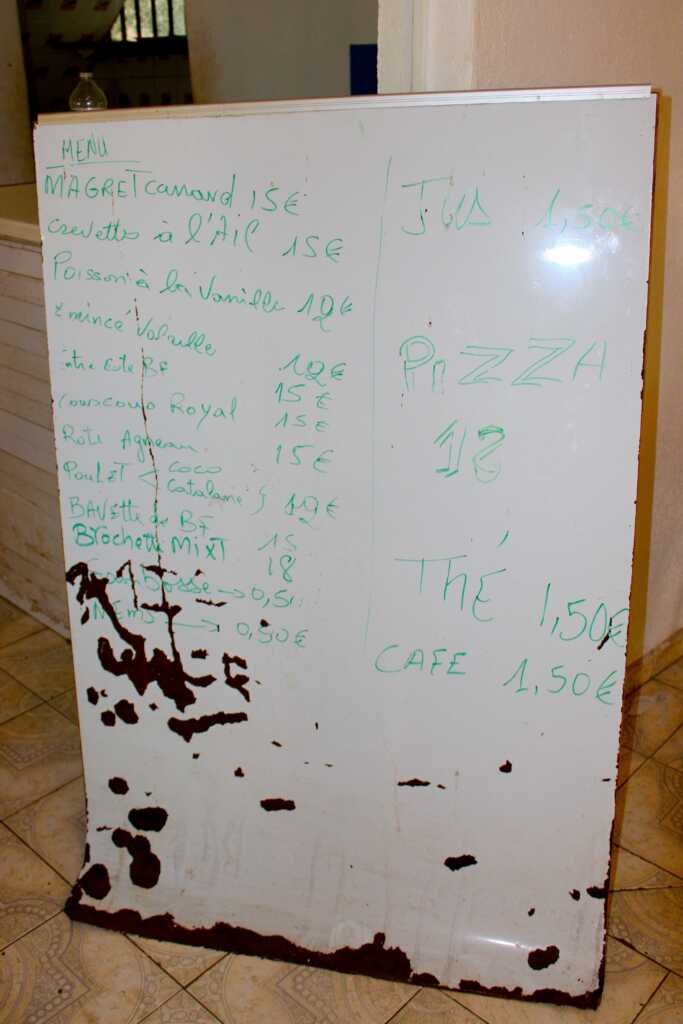 MENU
MAGRET canard 15€
crevettes à l'AIL 15€
Poisson à la Vanille 12€
Emincé Volaille 12€
entre Cote BF 15€
Couscous Royal 15€
Roti Agneau 15€
Poulet < coco
Catalane } 12€
BAVette de BF 15
Brochette MixT 18
Sambosse → 0,50
NEMS → 0,50€
JUS 1,50€
PiZZA
12
THÉ 1,50€
CAFE 1,50€